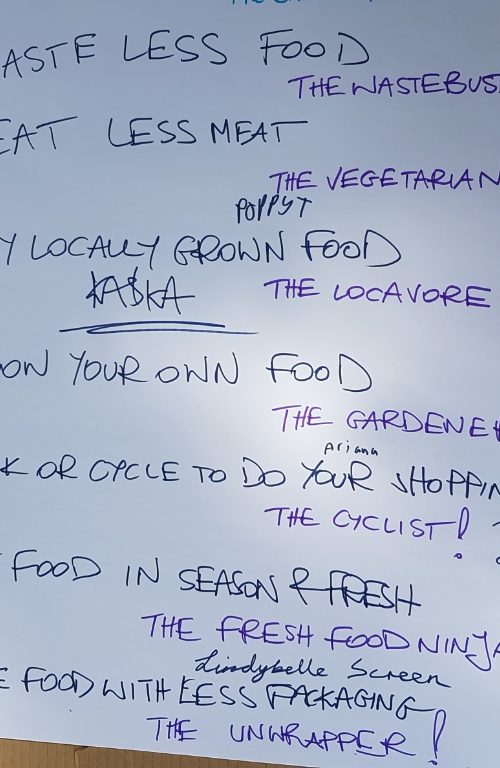 ASTE LESS FOOD
THE WASTEBUS
EAT LESS MEAT
THE VEGETARIAN
POPPY T
Y LOCALLY GROWN FOOD
KASKA
THE LOCAVORE
OW YOUR OWN FOOD
THE GARDENE
Ariana
K OR CYCLE TO DO YOUR SHOPPIN
THE CYCLIST!
FOOD IN SEASON & FRESH
THE FRESH FOOD NINJA
Lindybelle Screen
E FOOD WITH LESS PACKAGING
THE UNWRAPPER!